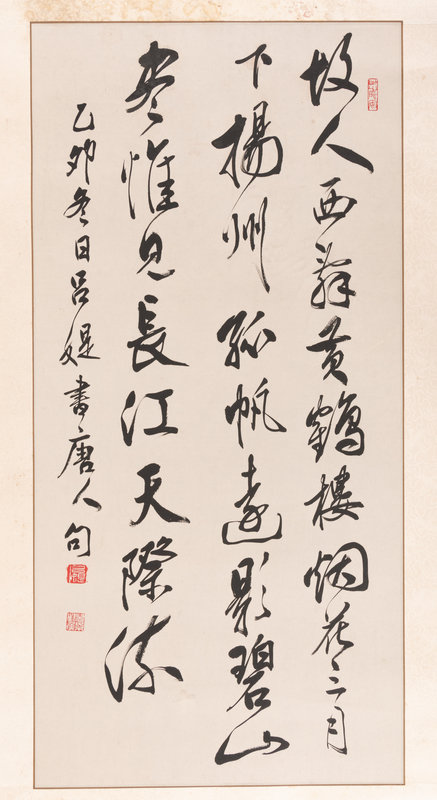 故人西辭黄鶴樓烟花三月
下揚州孤帆遠影碧山
盡惟見長江天際流
乙卯冬日呂媞書唐人句